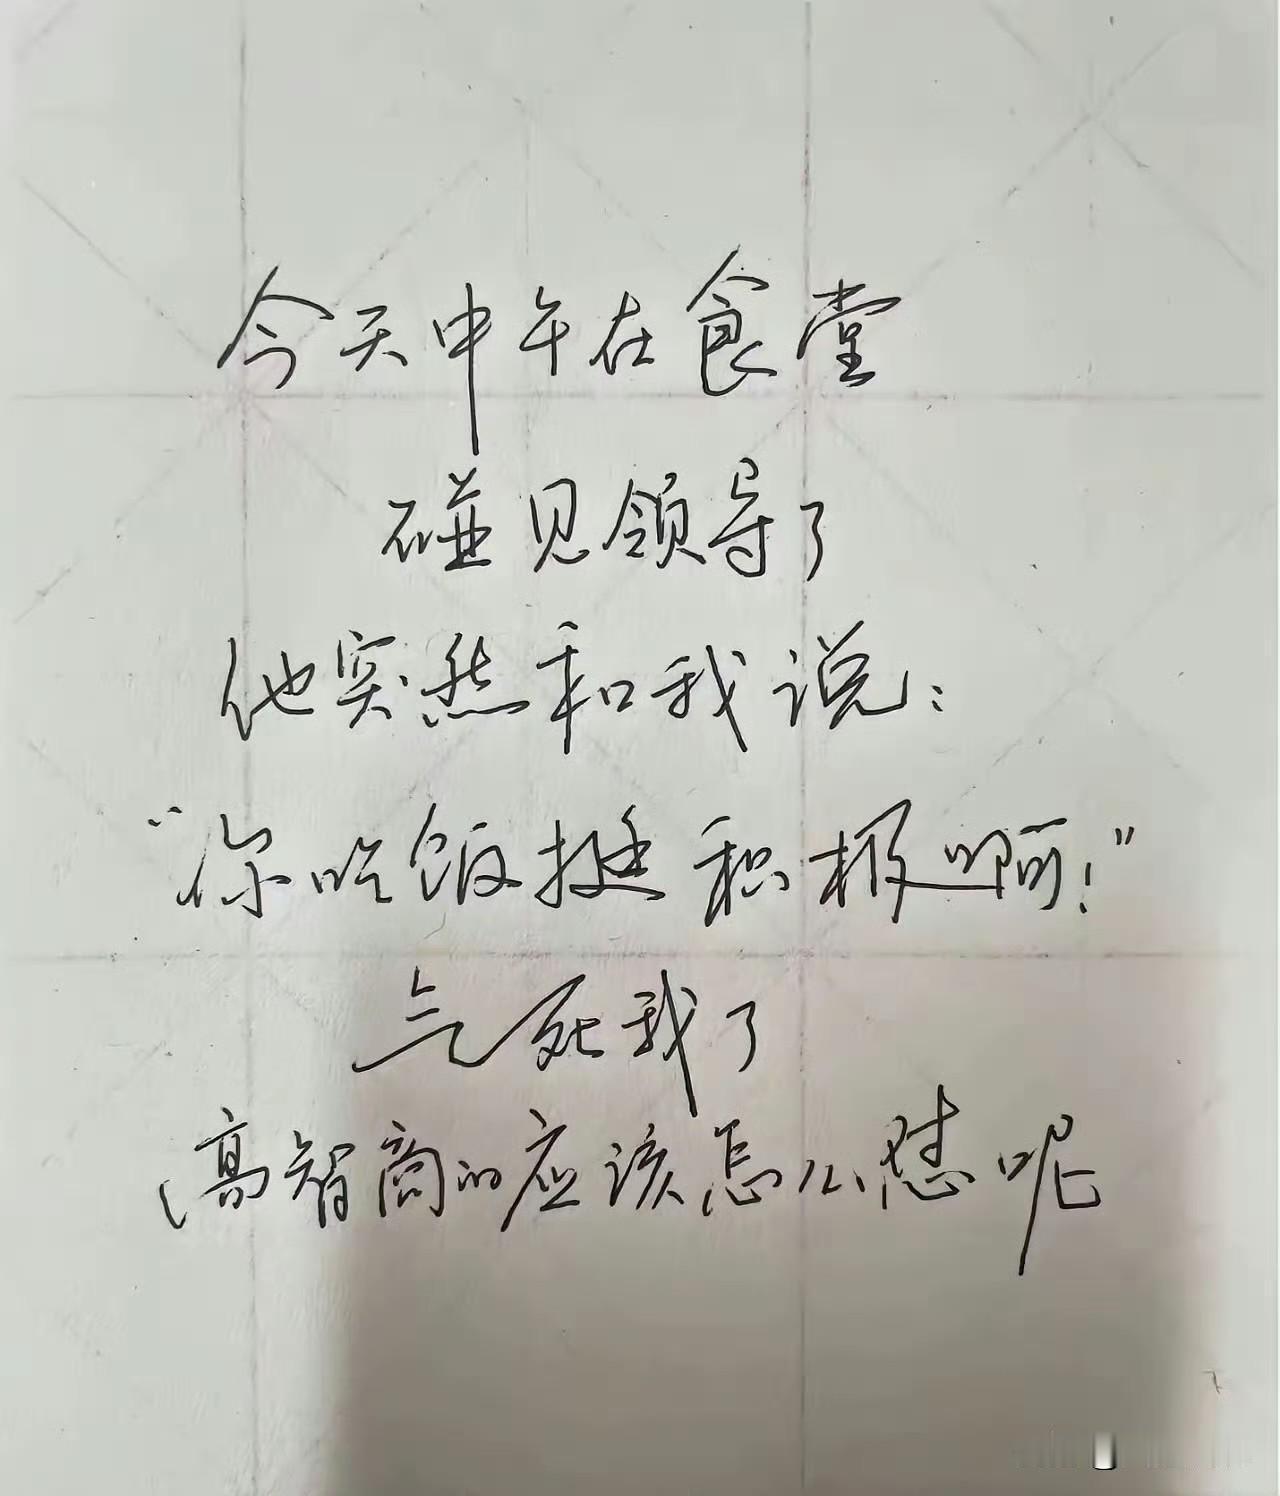 今天中午在食堂
碰见领导了
他突然和我说：
“你吃饭挺积极啊！”
气死我了
高智商的应该怎么怼呢